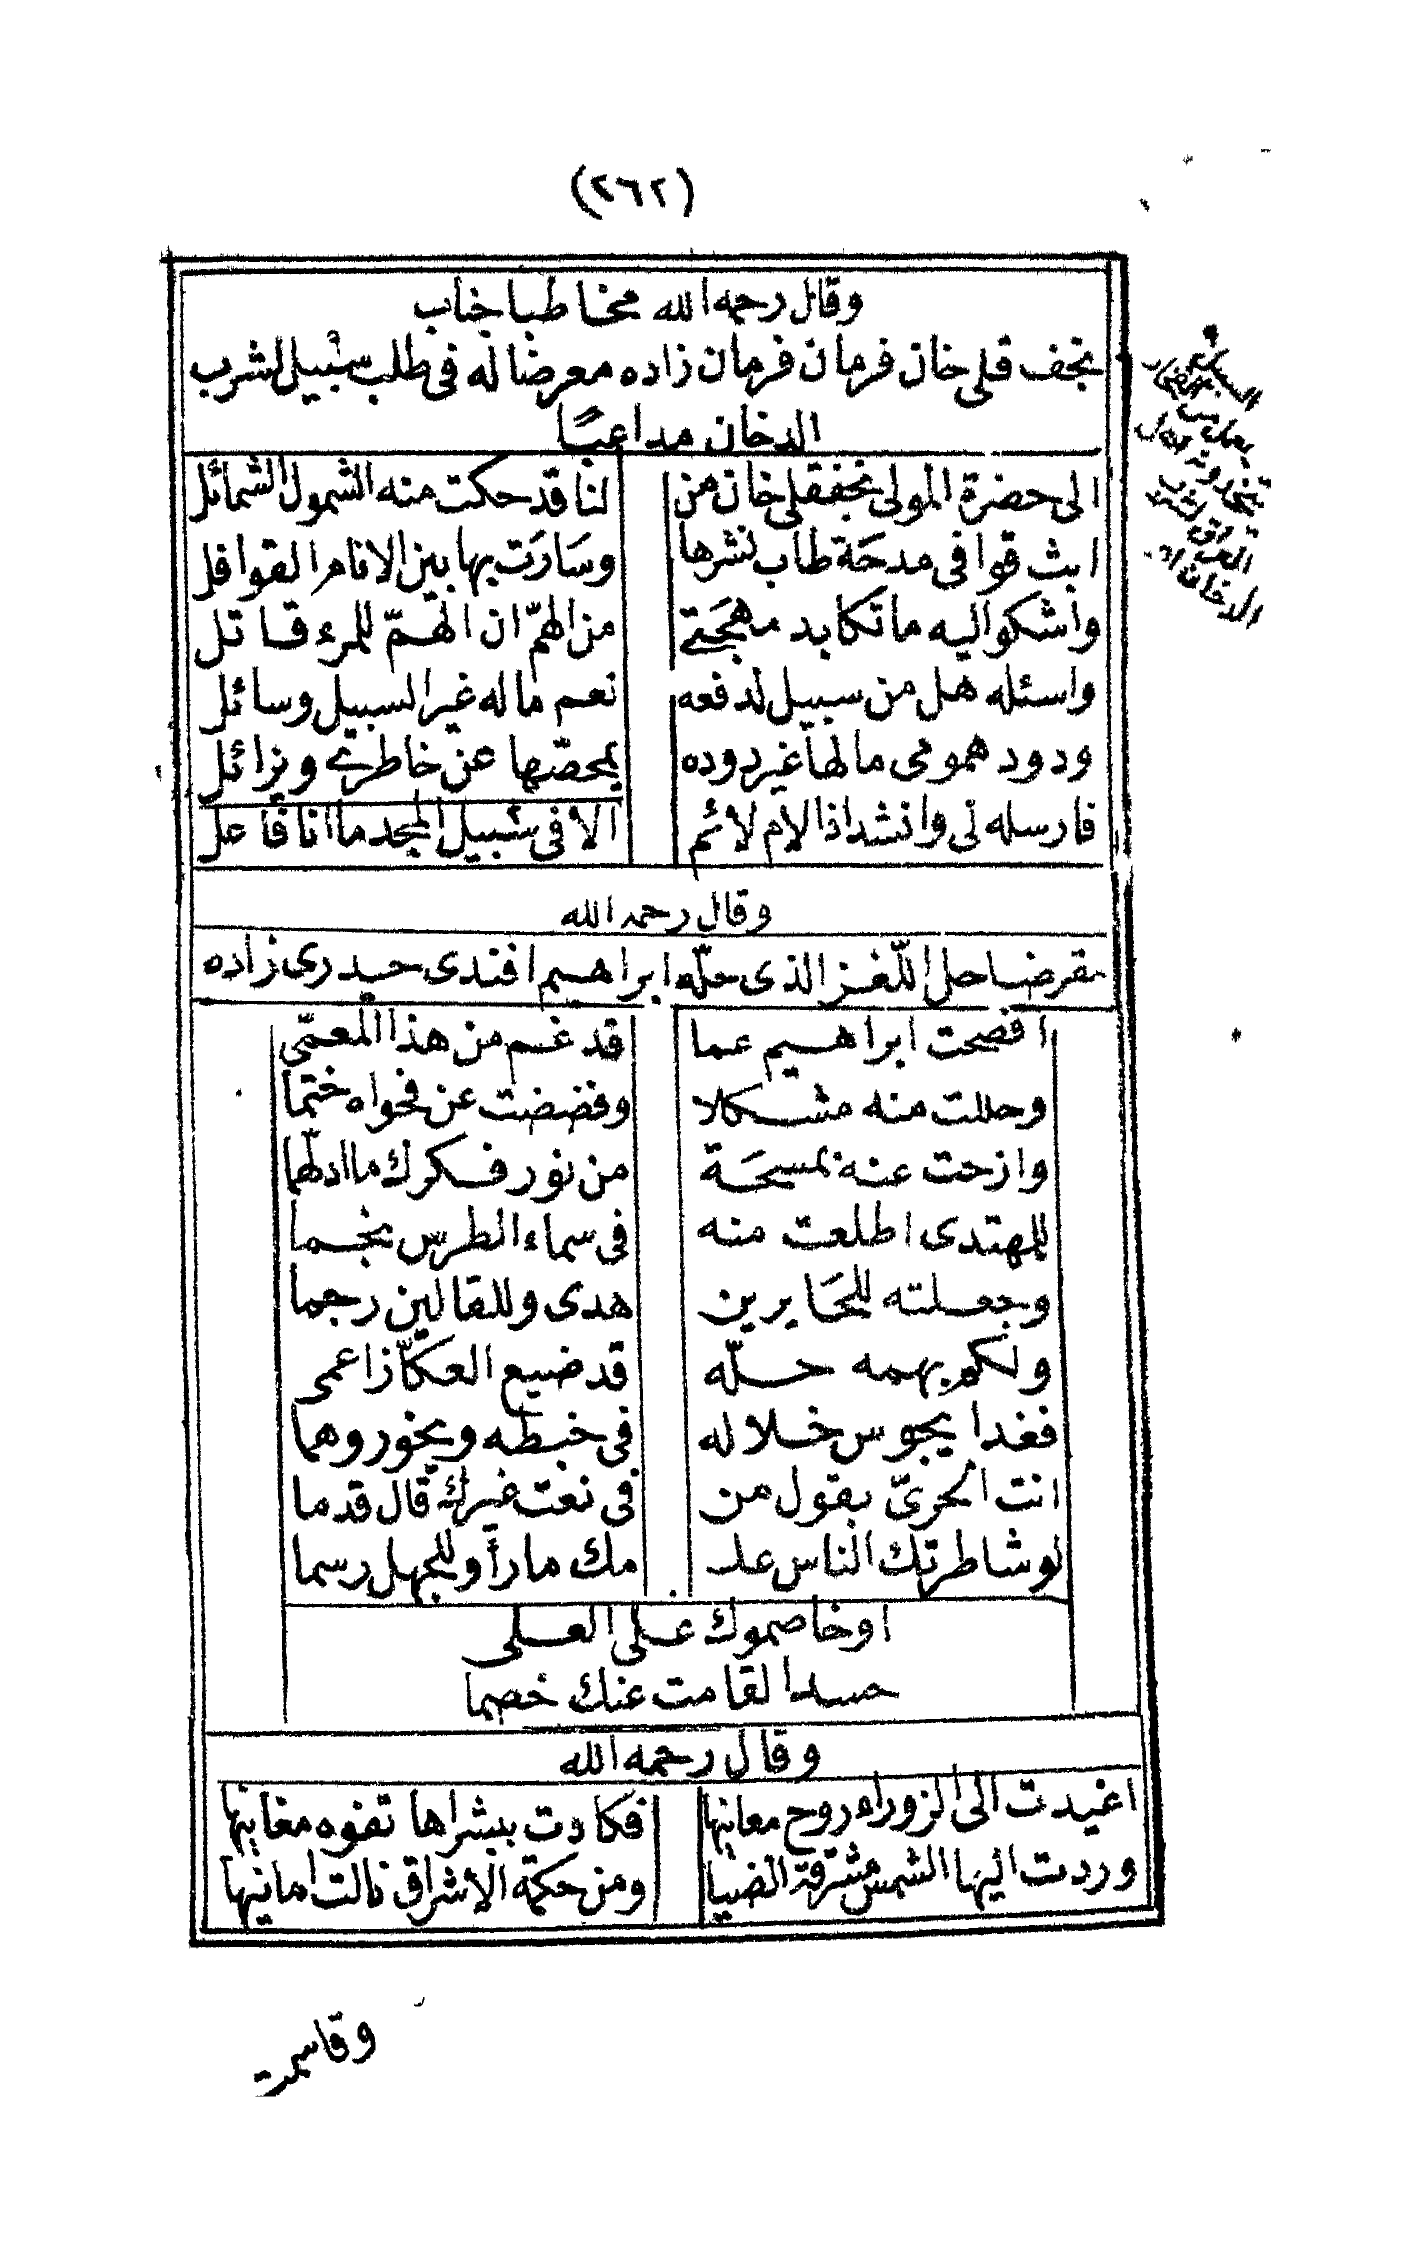 (٢٦٢)
وقال رحمه الله مخاطبا جناب
نجف قلى خان فرمان فرمان زاده معرضا له فى طلب سبيل لشرب
الدخان مداعبًا
الى حضرة المولى نجفقلى خان من لنا قد حكت منه الشمول الشمائل
ابث قوافى مدحَة طاب نشرها وسَارَت بها بين الانام القوافل
واشكو اليه ما تكابد مهجَتى من الهمّ ان الهمّ للمرء قاتل
واسئله هل من سبيل لدفعه نعم ماله غير السبيل وسائل
ودود همومى مالها غير دوده يمحصّها عن خاطرى ويزائل
فارسله لى وانشد اذا لام لائم الا فى سبيل المجد ما انا فاعل
وقال رحمه الله
مقرضا حل اللّغز الذى حلّه ابراهيم افندى حيدرى زاده
افصحت ابراهيم عما قد غم من هذا المعمّى
وحللت منه مشكلا وفضضت عن فحواه ختما
وازحت عنه بمسحَة من نور فكرك ما ادلهّما
للمهتدى اطلعت منه فى سماء الطرس نجما
وجعلته للحَايرين هدى وللقالين رجما
ولكم بهمه حلّه قد ضيع العكّاز اعمى
فغدا يجوس خلاله فى خبطه ويخور وهما
انت الحرىّ بقول من فى نعت غيرك قال قدما
لو شاطرتك الناس علـ مك ما رأوا للجهل رسما
او خاصموك على العلى
حسدا لقامت عنك خصما
وقال رحمه الله
اغيدت الى الزوراء روح معانيها فكادت ببشراها تفوه مغانيها
وردت اليها الشمس مشرقة الضيا ومن حكمة الاشراق نالت امانيها
وقاسمت